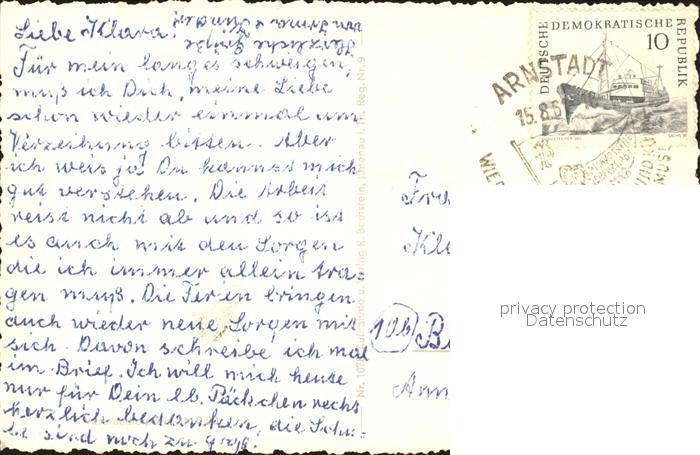 Liebe Klara!
Für mein langes schweigen,
muß ich Dich, meine Liebe
schon wieder einmal um
Verzeihung bitten. Aber
ich weis ja Du kannst mich
gut verstehen. Die Arbeit
reist nicht ab und so ist
es auch mit den Sorgen
die ich immer allein tra-
gen muß. Die Ferien bringen
auch wieder neue Sorgen mit
sich. Davon schreibe ich mal
im Brief. Ich will mich heute
nur für Dein lb. Päckchen recht
herzlich bedanken, die Schu-
he sind noch zu groß.
Herzliche Grüße
DEUTSCHE DEMOKRATISCHE REPUBLIK
10
ARNSTADT
15.8.6
Fra
Kla
(10b)
Anna
privacy protection
Datenschutz